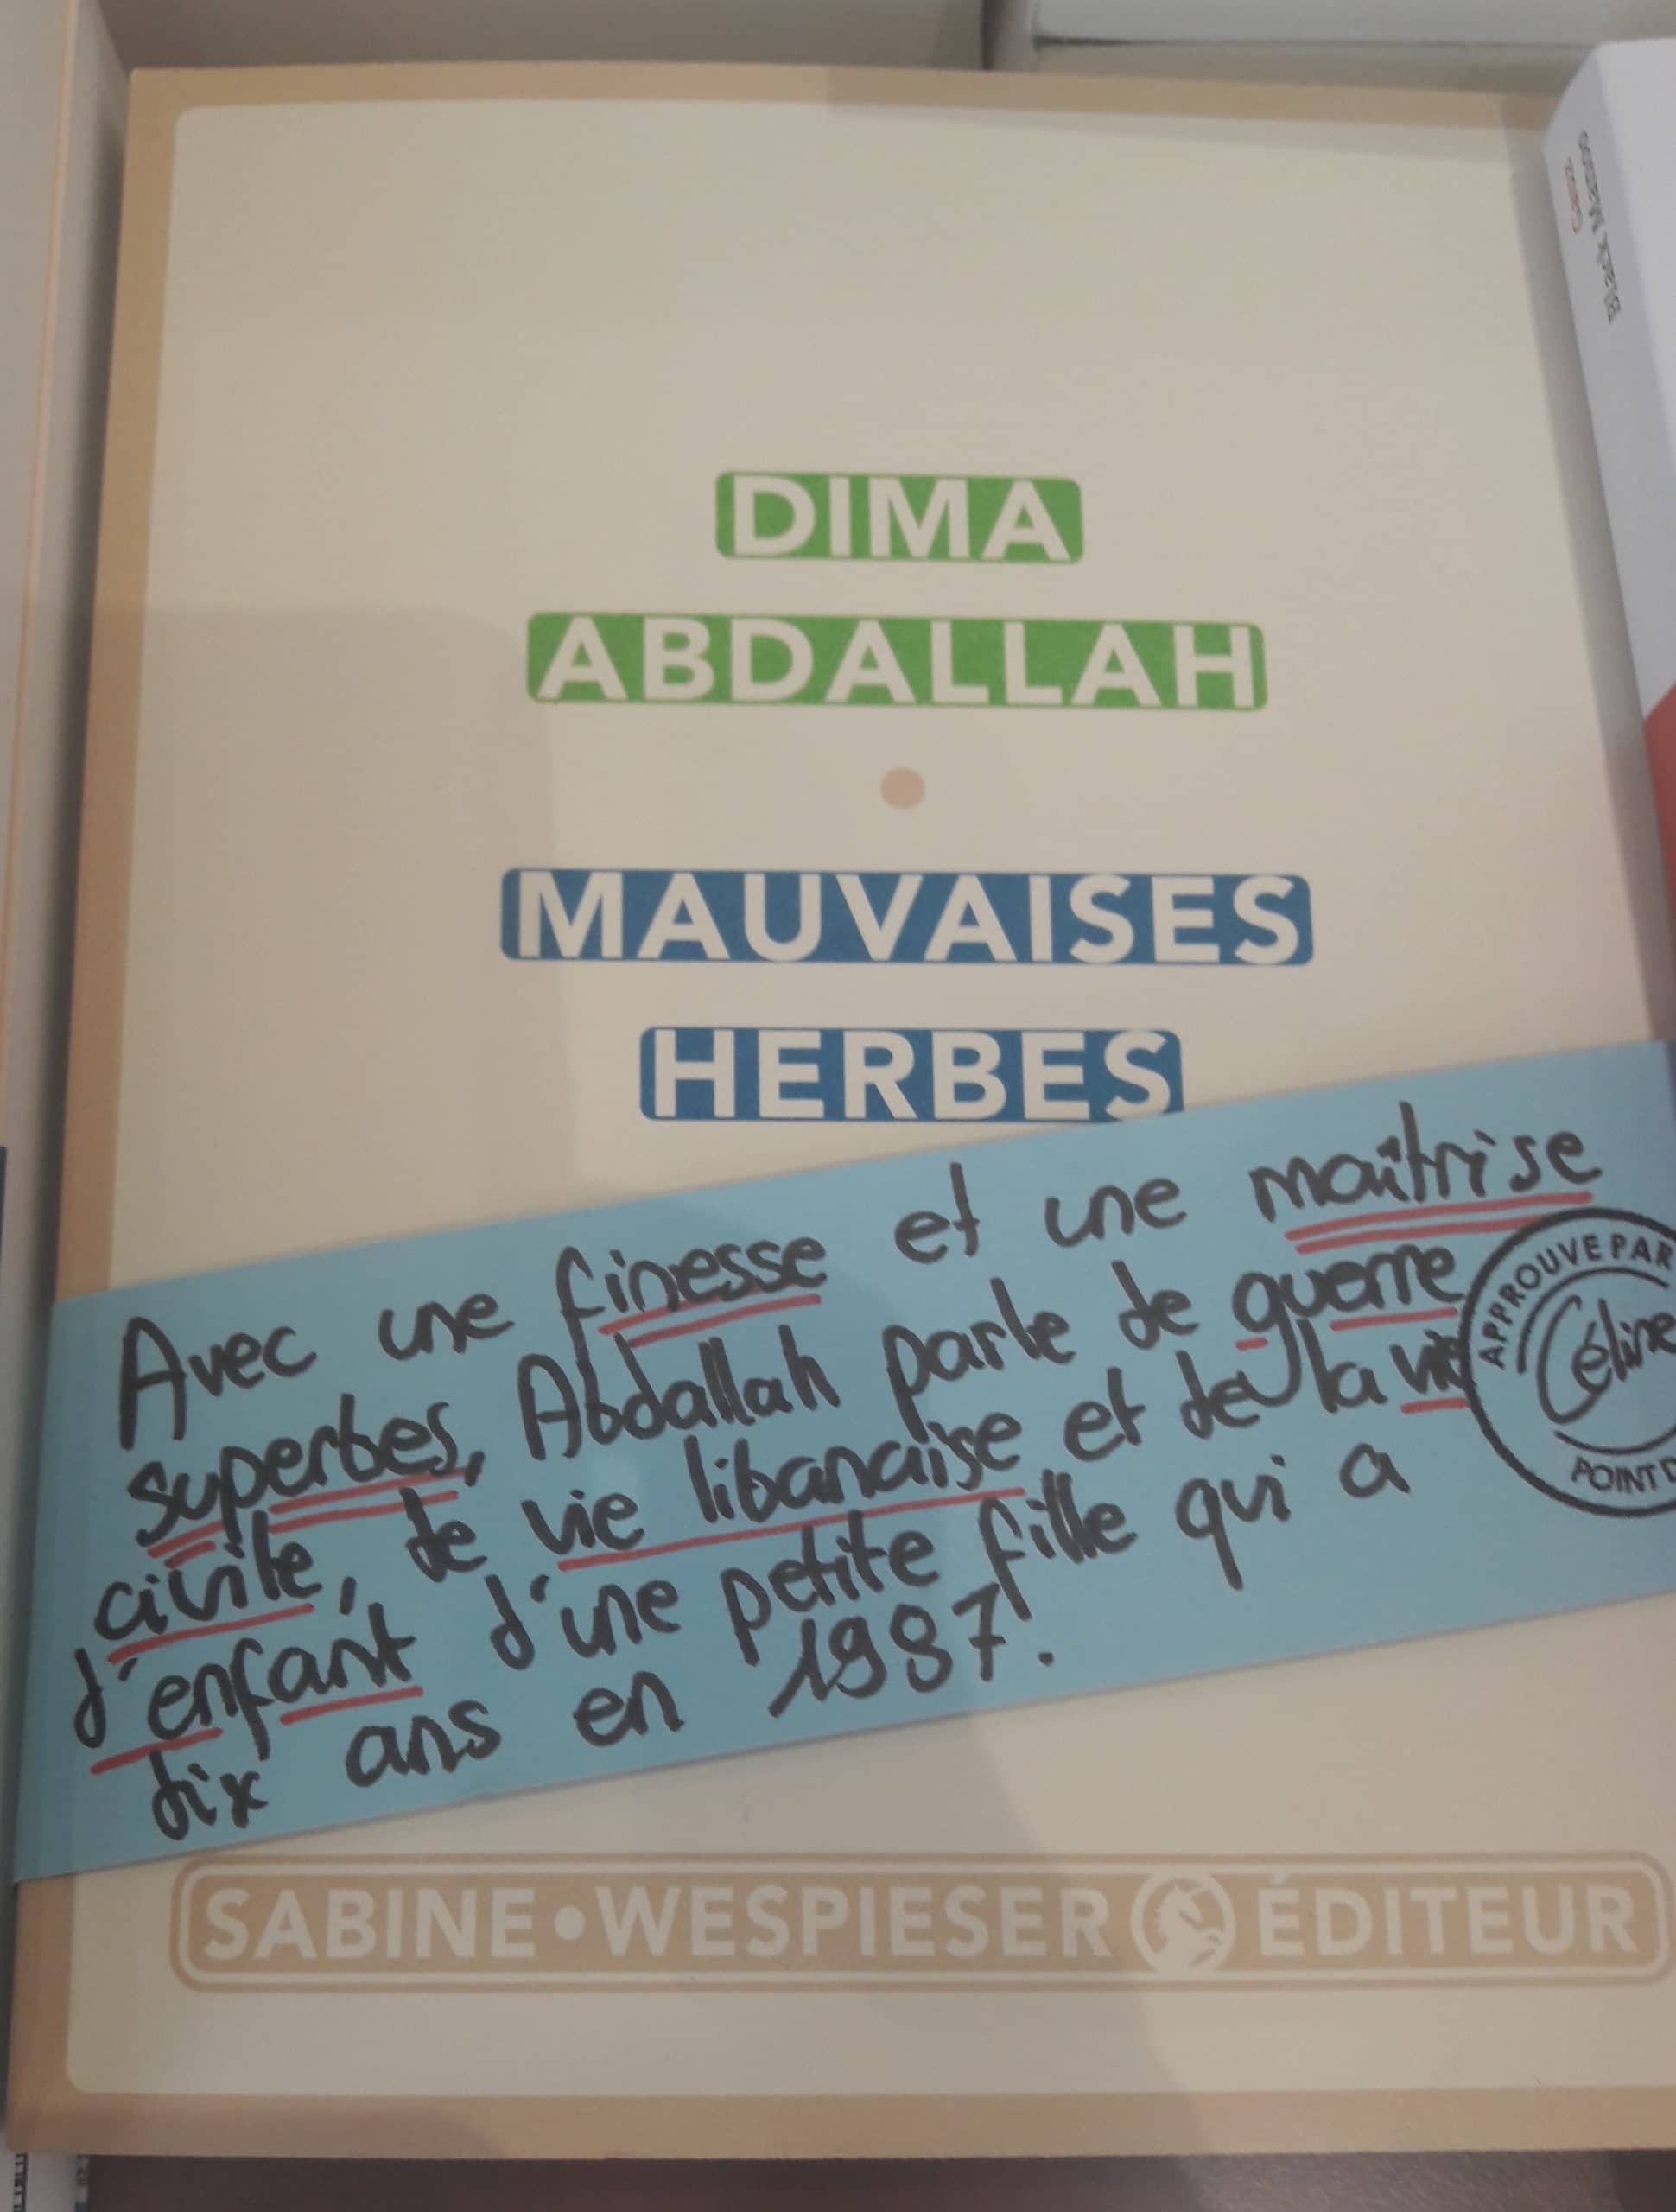 DIMA
ABDALLAH
MAUVAISES
HERBES
Avec une finesse et une maîtrise
superbes, Abdallah parle de guerre
civile, de vie libanaise et de la vie
d'enfant d'une petite fille qui a
dix ans en 1987.
APPROUVE PAR
Céline
POINT D
SABINE • WESPIESER ÉDITEUR
Black Mambo